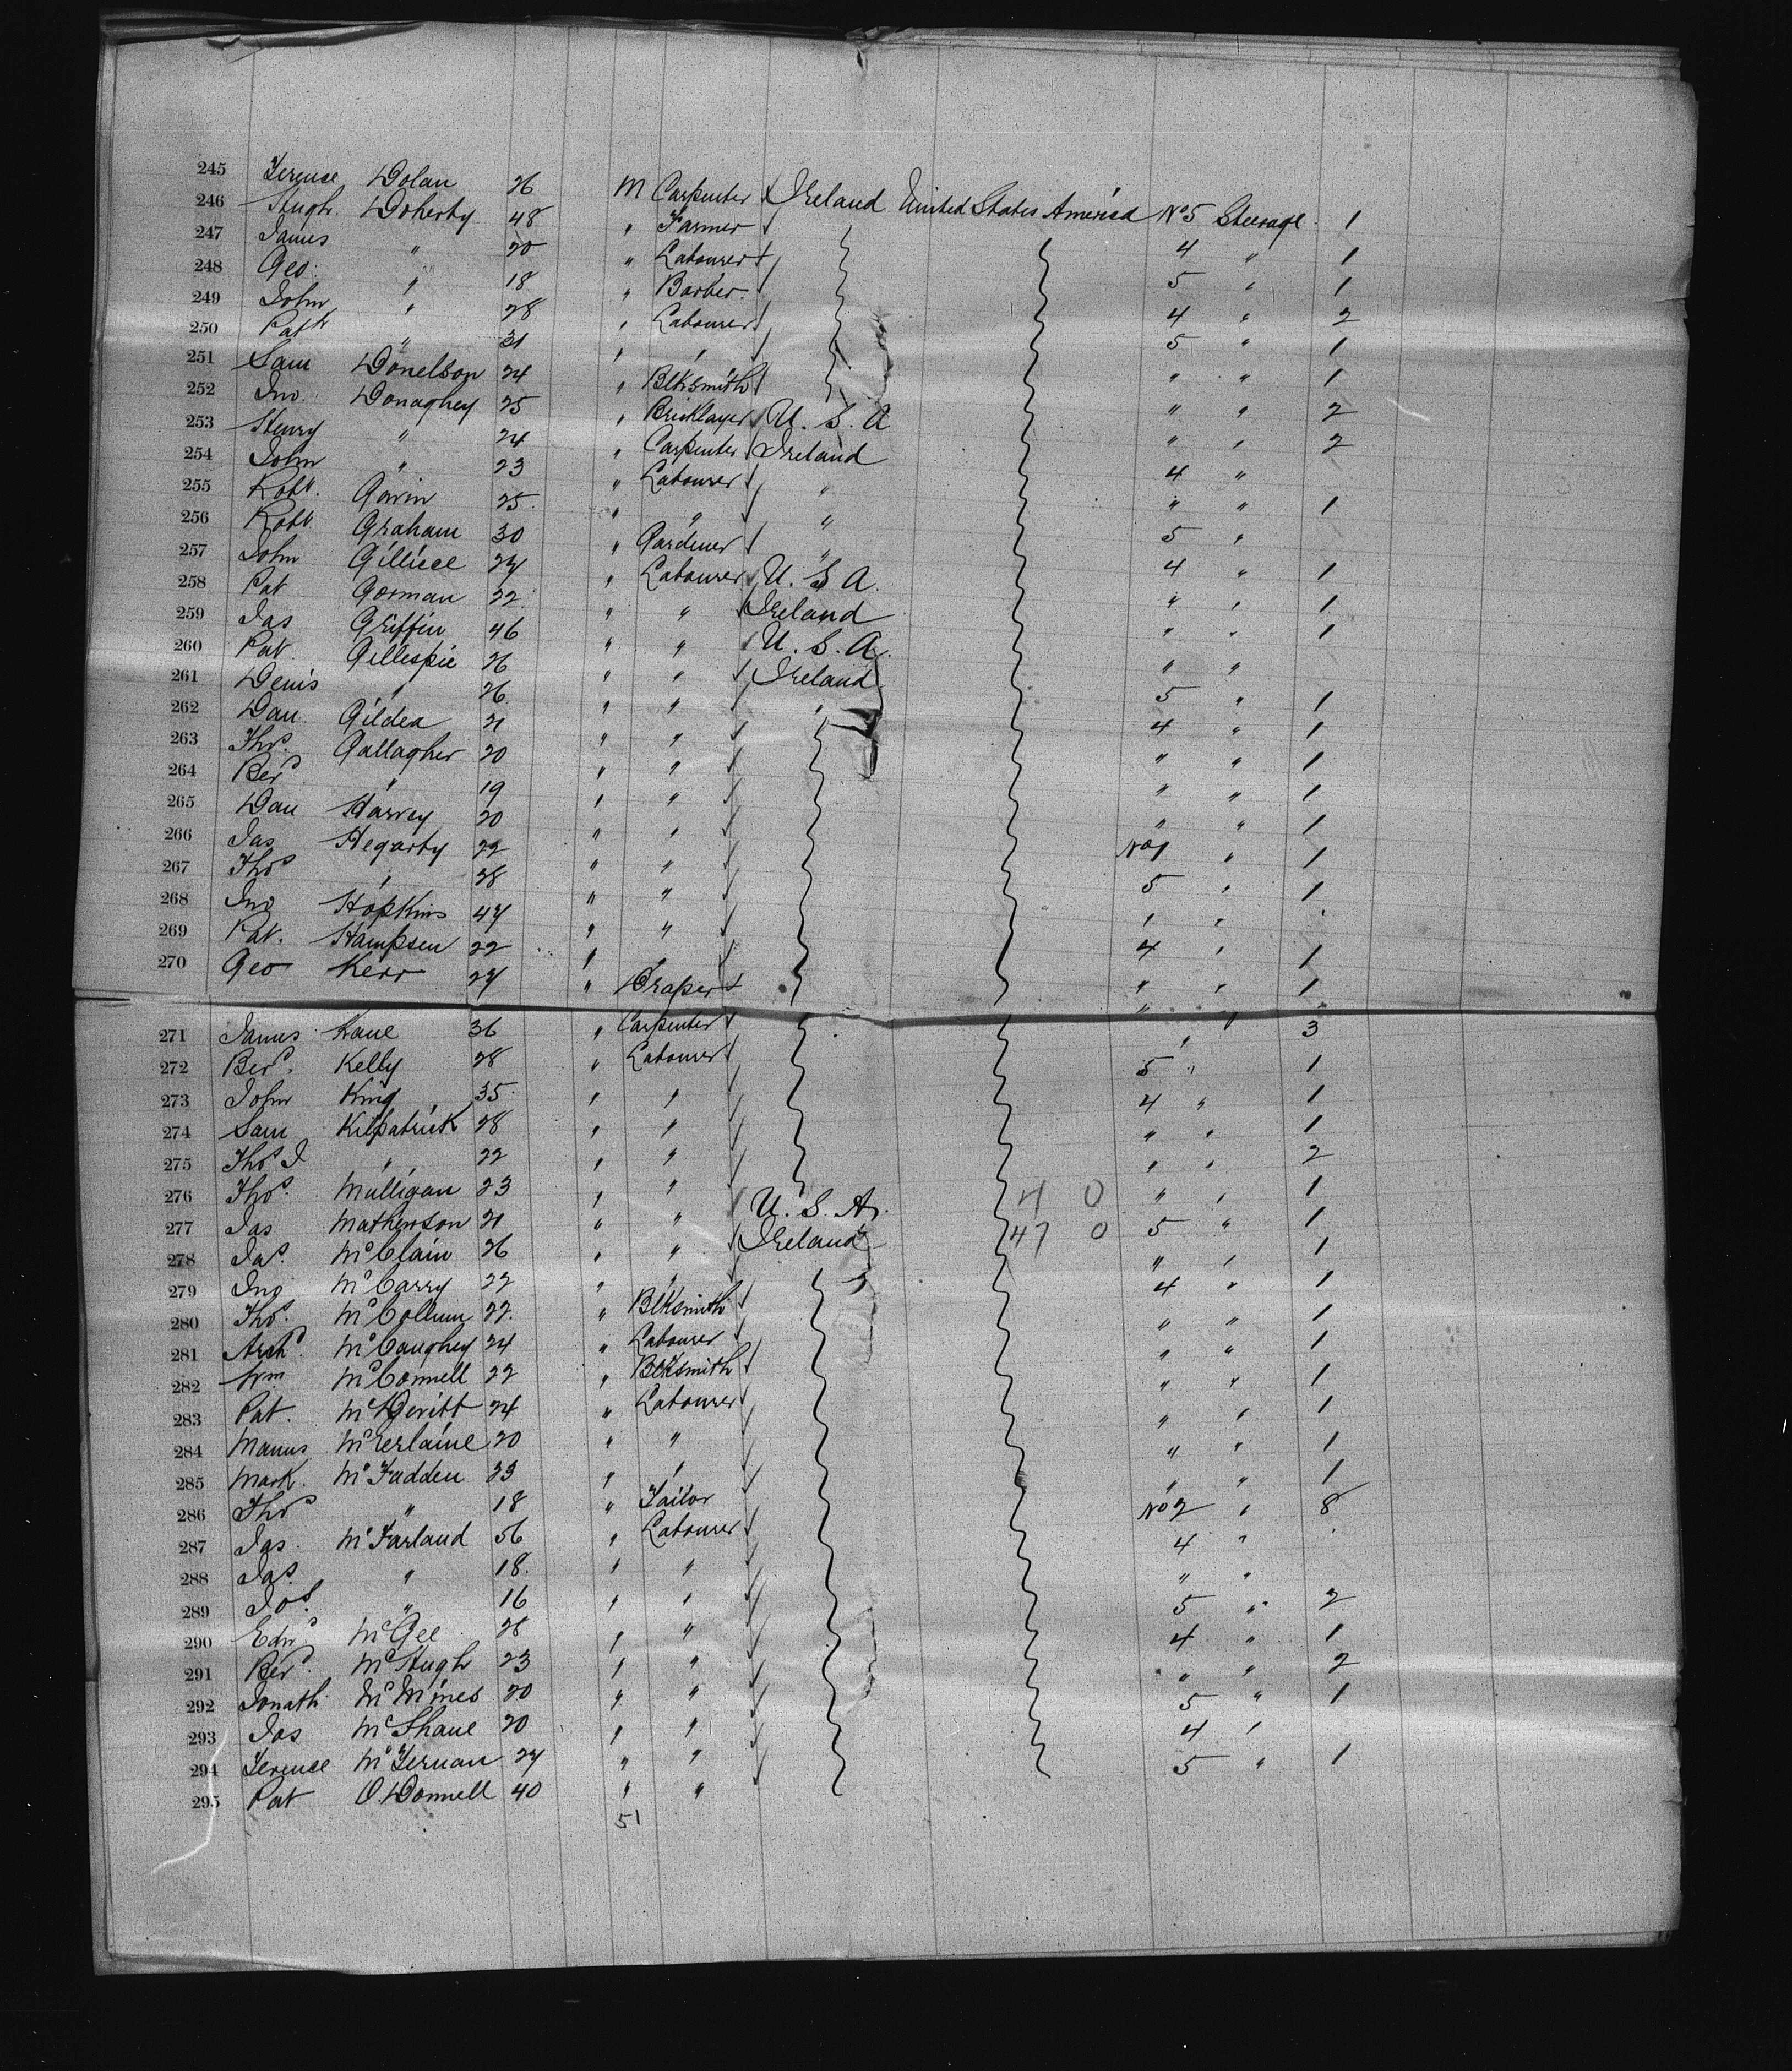 245 Terence Dolan 26 M Carpenter Ireland United States America No 5 Steerage 1
246 Hugh Doherty 48 " Farmer 4 " 1
247 James " 20 " Labourer 5 " 1
248 Geo. " 18 " Barber 4 " 2
249 John " 28 " Labourer 5 " 1
250 Patk " 31 " " " " 1
251 Sam Donelson 24 " Blksmith " " 2
252 Jno Donaghey 25 " Bricklayer U. S. A " " 2
253 Henry " 24 " Carpenter Ireland 4 "
254 John " 23 " Labourer " " " 1
255 Robt. Gavin 25 " " " 5 "
256 Robt. Graham 30 " Gardener " 4 " 1
257 John Gilliece 27 " Labourer U. S. A. " " 1
258 Pat Gorman 22 " " Ireland " " 1
259 Jas Griffin 46 " " U. S. A. " "
260 Pat. Gillespie 26 " " Ireland 5 " 1
261 Denis " 26 " " " 4 " 1
262 Dan. Gildea 21 " " " " 1
263 Thos. Gallagher 20 " " " " 1
264 Berd " 19 " " " " 1
265 Dan Harvey 20 " " No 1 " 1
266 Jas Hegarty 22 " " 5 " 1
267 Thos " 28 " " " "
268 Jno Hopkins 47 " " 4 " 1
269 Pat. Hampsen 22 " " " " 1
270 Geo Kerr 27 " Draper " "
271 James Kane 36 " Carpenter " 3
272 Berd. Kelly 28 " Labourer 5 " 1
273 John King 35 " " 4 " 1
274 Sam Kilpatrick 28 " " " " 1
275 Thos J " 22 " " " " 2
276 Thos. Mulligan 23 " " U. S. A. 4 0 " " 1
277 Jas Matherson 21 " " Ireland 47 0 5 " 1
278 Jas. McClain 26 " " " " 1
279 Jno McCarry 22 " " 4 " 1
280 Thos. McCollum 22 " Blksmith " " 1
281 Archd. McCaughey 24 " Labourer " " 1
282 Wm McConnell 22 " Blksmith " " 1
283 Pat. McDevitt 24 " Labourer " " 1
284 Manus McErlaine 20 " " " " 1
285 Mark. McFadden 23 " " " " 1
286 Thos " 18 " Tailor No 2 " 8
287 Jas. McFarland 56 " Labourer 4 "
288 Jas. " 18 " " " "
289 Jos. " 16 " " 5 " 2
290 Edwd McGee 28 " " 4 " 1
291 Berd. McHugh 23 " " " " 2
292 Jonath McMines 20 " " 5 " 1
293 Jas McShane 20 " " 4 "
294 Terence McTernan 27 " " 5 " 1
295 Pat O'Donnell 40 " "
51